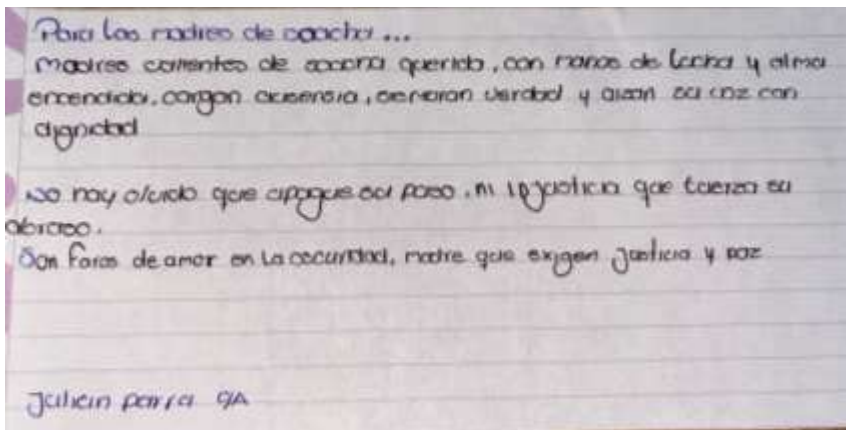 Para las madres de soacha...
madres valientes de soacha querida, con manos de lucha y alma
encendida, cargan ausencia, siembran verdad y alzan su voz con
dignidad
No hay olvido que apague su paso, ni injusticia que tuerza su
abrazo.
Son faros de amor en la oscuridad, madre que exigen justicia y paz
Julian parra 9A